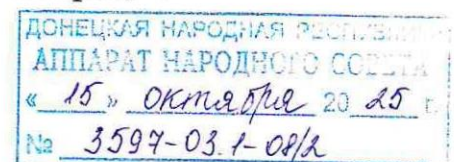 ДОНЕЦКАЯ НАРОДНАЯ РЕСПУБЛИКА
АППАРАТ НАРОДНОГО СОВЕТА
« 15 » октября 20 25 г.
№ 3597-03.1-08/2